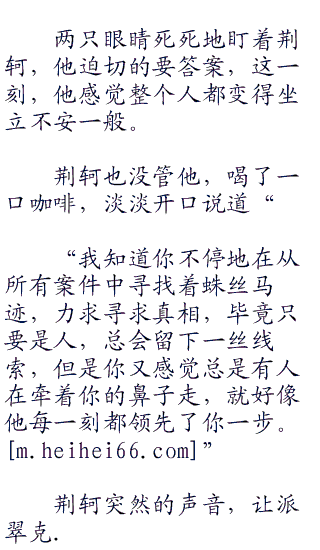 两只眼睛死死地盯着荆
轲，他迫切的要答案，这一
刻，他感觉整个人都变得坐
立不安一般。
荆轲也没管他，喝了一
口咖啡，淡淡开口说道“
“我知道你不停地在从
所有案件中寻找着蛛丝马
迹，力求寻求真相，毕竟只
要是人，总会留下一丝线
索，但是你又感觉总是有人
在牵着你的鼻子走，就好像
他每一刻都领先了你一步。
[m.heihei66.com]”
荆轲突然的声音，让派
翠克.